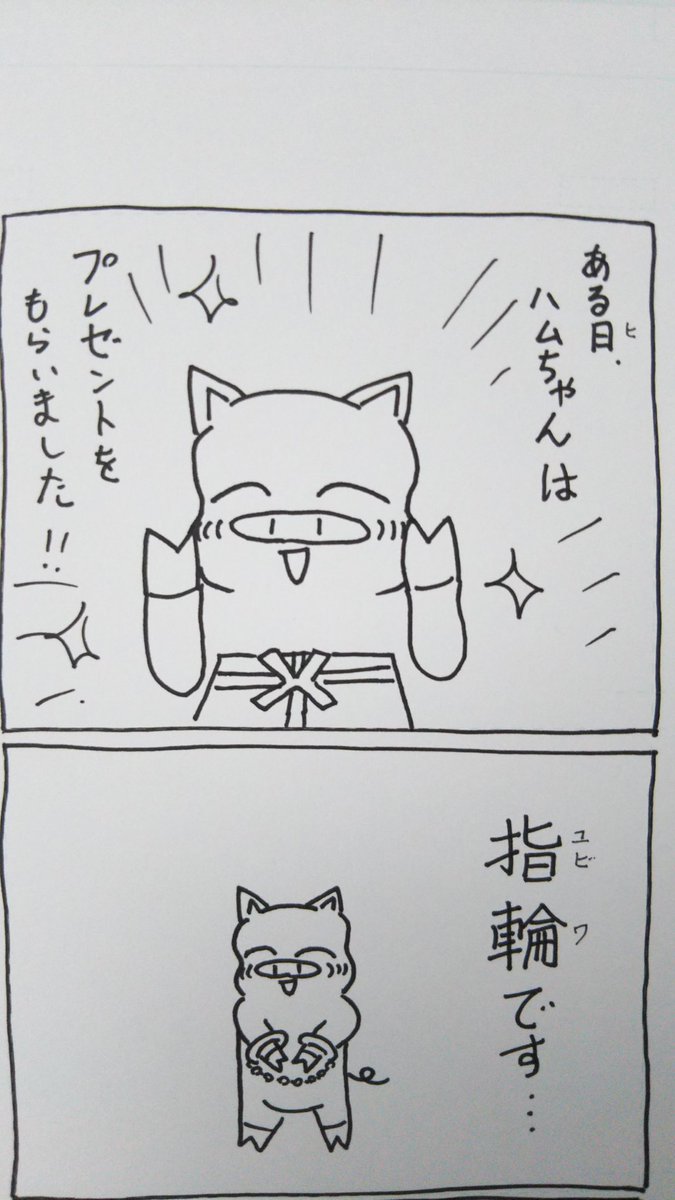 ある日、
ヒ
ハムちゃんは
プレゼントを
もらいました!!
指輪です…
ユビワ